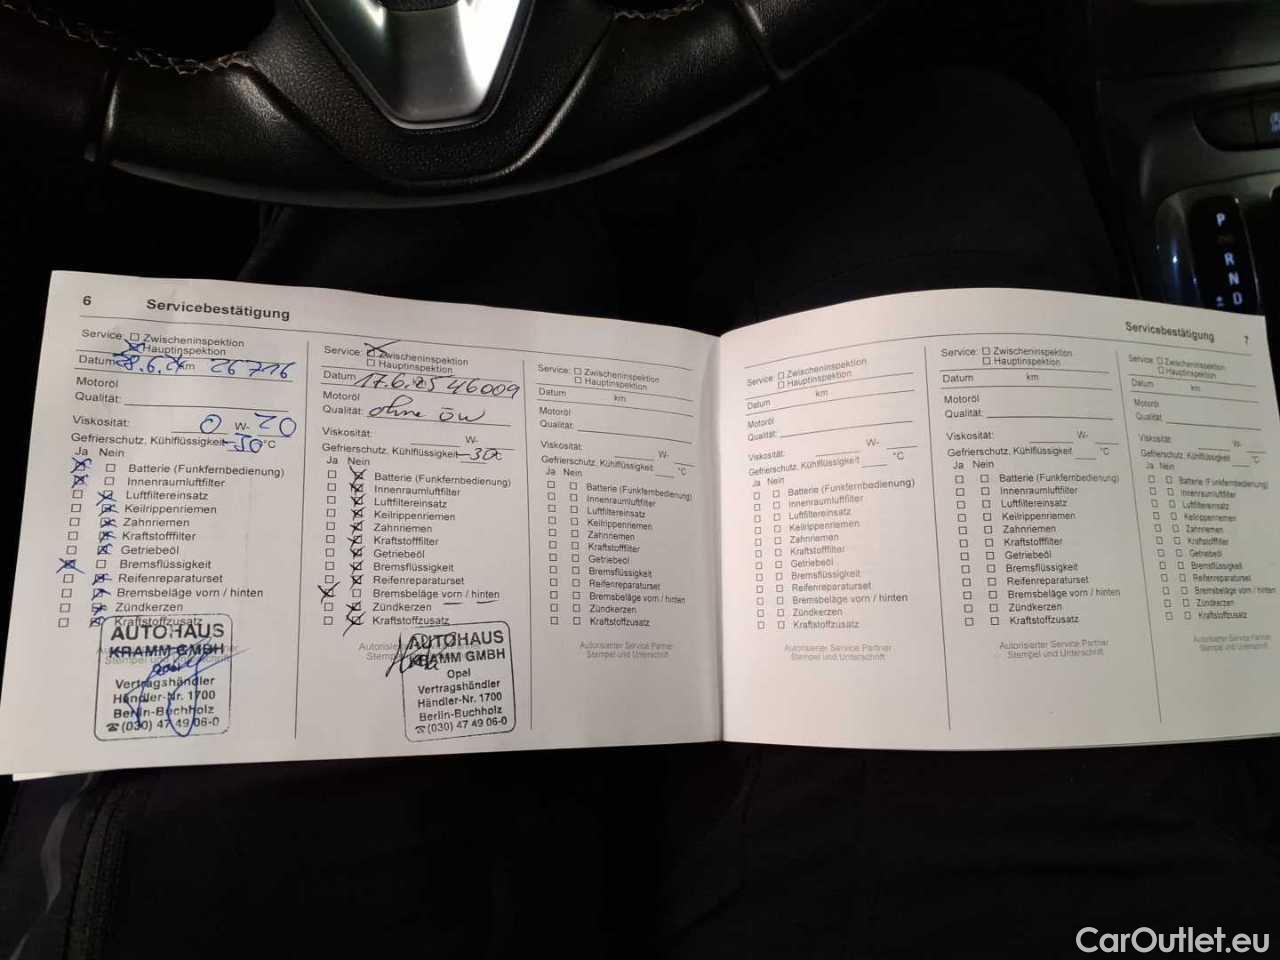 6 Servicebestätigung
Service: Zwischeninspektion
Hauptinspektion
Datum 28.6.24 km 26716
Motoröl
Qualität:
Viskosität: 0 W- 20
Gefrierschutz, Kühlflüssigkeit -30 °C
Ja Nein
Batterie (Funkfernbedienung)
Innenraumluftfilter
Luftfiltereinsatz
Keilrippenriemen
Zahnriemen
Kraftstofffilter
Getriebeöl
Bremsflüssigkeit
Reifenreparaturset
Bremsbeläge vorn / hinten
Zündkerzen
Kraftstoffzusatz
Stempel und Unterschrift
AUTOHAUS
KRAMM GMBH
Opel
Vertragshändler
Händler-Nr. 1700
Berlin-Buchholz
☎(030) 47 49 06-0
Service: Zwischeninspektion
Hauptinspektion
Datum 17.6.25 46009
Motoröl
Qualität: ohne ÖW
Viskosität: W-
Gefrierschutz, Kühlflüssigkeit -30
Ja Nein
Batterie (Funkfernbedienung)
Innenraumluftfilter
Luftfiltereinsatz
Keilrippenriemen
Zahnriemen
Kraftstofffilter
Getriebeöl
Bremsflüssigkeit
Reifenreparaturset
Bremsbeläge vorn / hinten
Zündkerzen
Kraftstoffzusatz
AUTOHAUS
KRAMM GMBH
Opel
Vertragshändler
Händler-Nr. 1700
Berlin-Buchholz
☎(030) 47 49 06-0
Service: Zwischeninspektion
Hauptinspektion
Datum km
Motoröl
Qualität:
Viskosität: W-
Gefrierschutz, Kühlflüssigkeit °C
Ja Nein
Batterie (Funkfernbedienung)
Innenraumluftfilter
Luftfiltereinsatz
Keilrippenriemen
Zahnriemen
Kraftstofffilter
Getriebeöl
Bremsflüssigkeit
Reifenreparaturset
Bremsbeläge vorn / hinten
Zündkerzen
Kraftstoffzusatz
Autorisierter Service Partner
Stempel und Unterschrift
Servicebestätigung 7
Service: Zwischeninspektion
Hauptinspektion
Datum km
Motoröl
Qualität:
Viskosität: W-
Gefrierschutz, Kühlflüssigkeit °C
Ja Nein
Batterie (Funkfernbedienung)
Innenraumluftfilter
Luftfiltereinsatz
Keilrippenriemen
Zahnriemen
Kraftstofffilter
Getriebeöl
Bremsflüssigkeit
Reifenreparaturset
Bremsbeläge vorn / hinten
Zündkerzen
Kraftstoffzusatz
Autorisierter Service Partner
Stempel und Unterschrift
Service: Zwischeninspektion
Hauptinspektion
Datum km
Motoröl
Qualität:
Viskosität: W-
Gefrierschutz, Kühlflüssigkeit °C
Ja Nein
Batterie (Funkfernbedienung)
Innenraumluftfilter
Luftfiltereinsatz
Keilrippenriemen
Zahnriemen
Kraftstofffilter
Getriebeöl
Bremsflüssigkeit
Reifenreparaturset
Bremsbeläge vorn / hinten
Zündkerzen
Kraftstoffzusatz
Autorisierter Service Partner
Stempel und Unterschrift
Service: Zwischeninspektion
Hauptinspektion
Datum km
Motoröl
Qualität:
Viskosität: W-
Gefrierschutz, Kühlflüssigkeit °C
Ja Nein
Batterie (Funkfernbedienung)
Innenraumluftfilter
Luftfiltereinsatz
Keilrippenriemen
Zahnriemen
Kraftstofffilter
Getriebeöl
Bremsflüssigkeit
Reifenreparaturset
Bremsbeläge vorn / hinten
Zündkerzen
Kraftstoffzusatz
Autorisierter Service Partner
Stempel und Unterschrift
P
R
N
± D
CarOutlet.eu